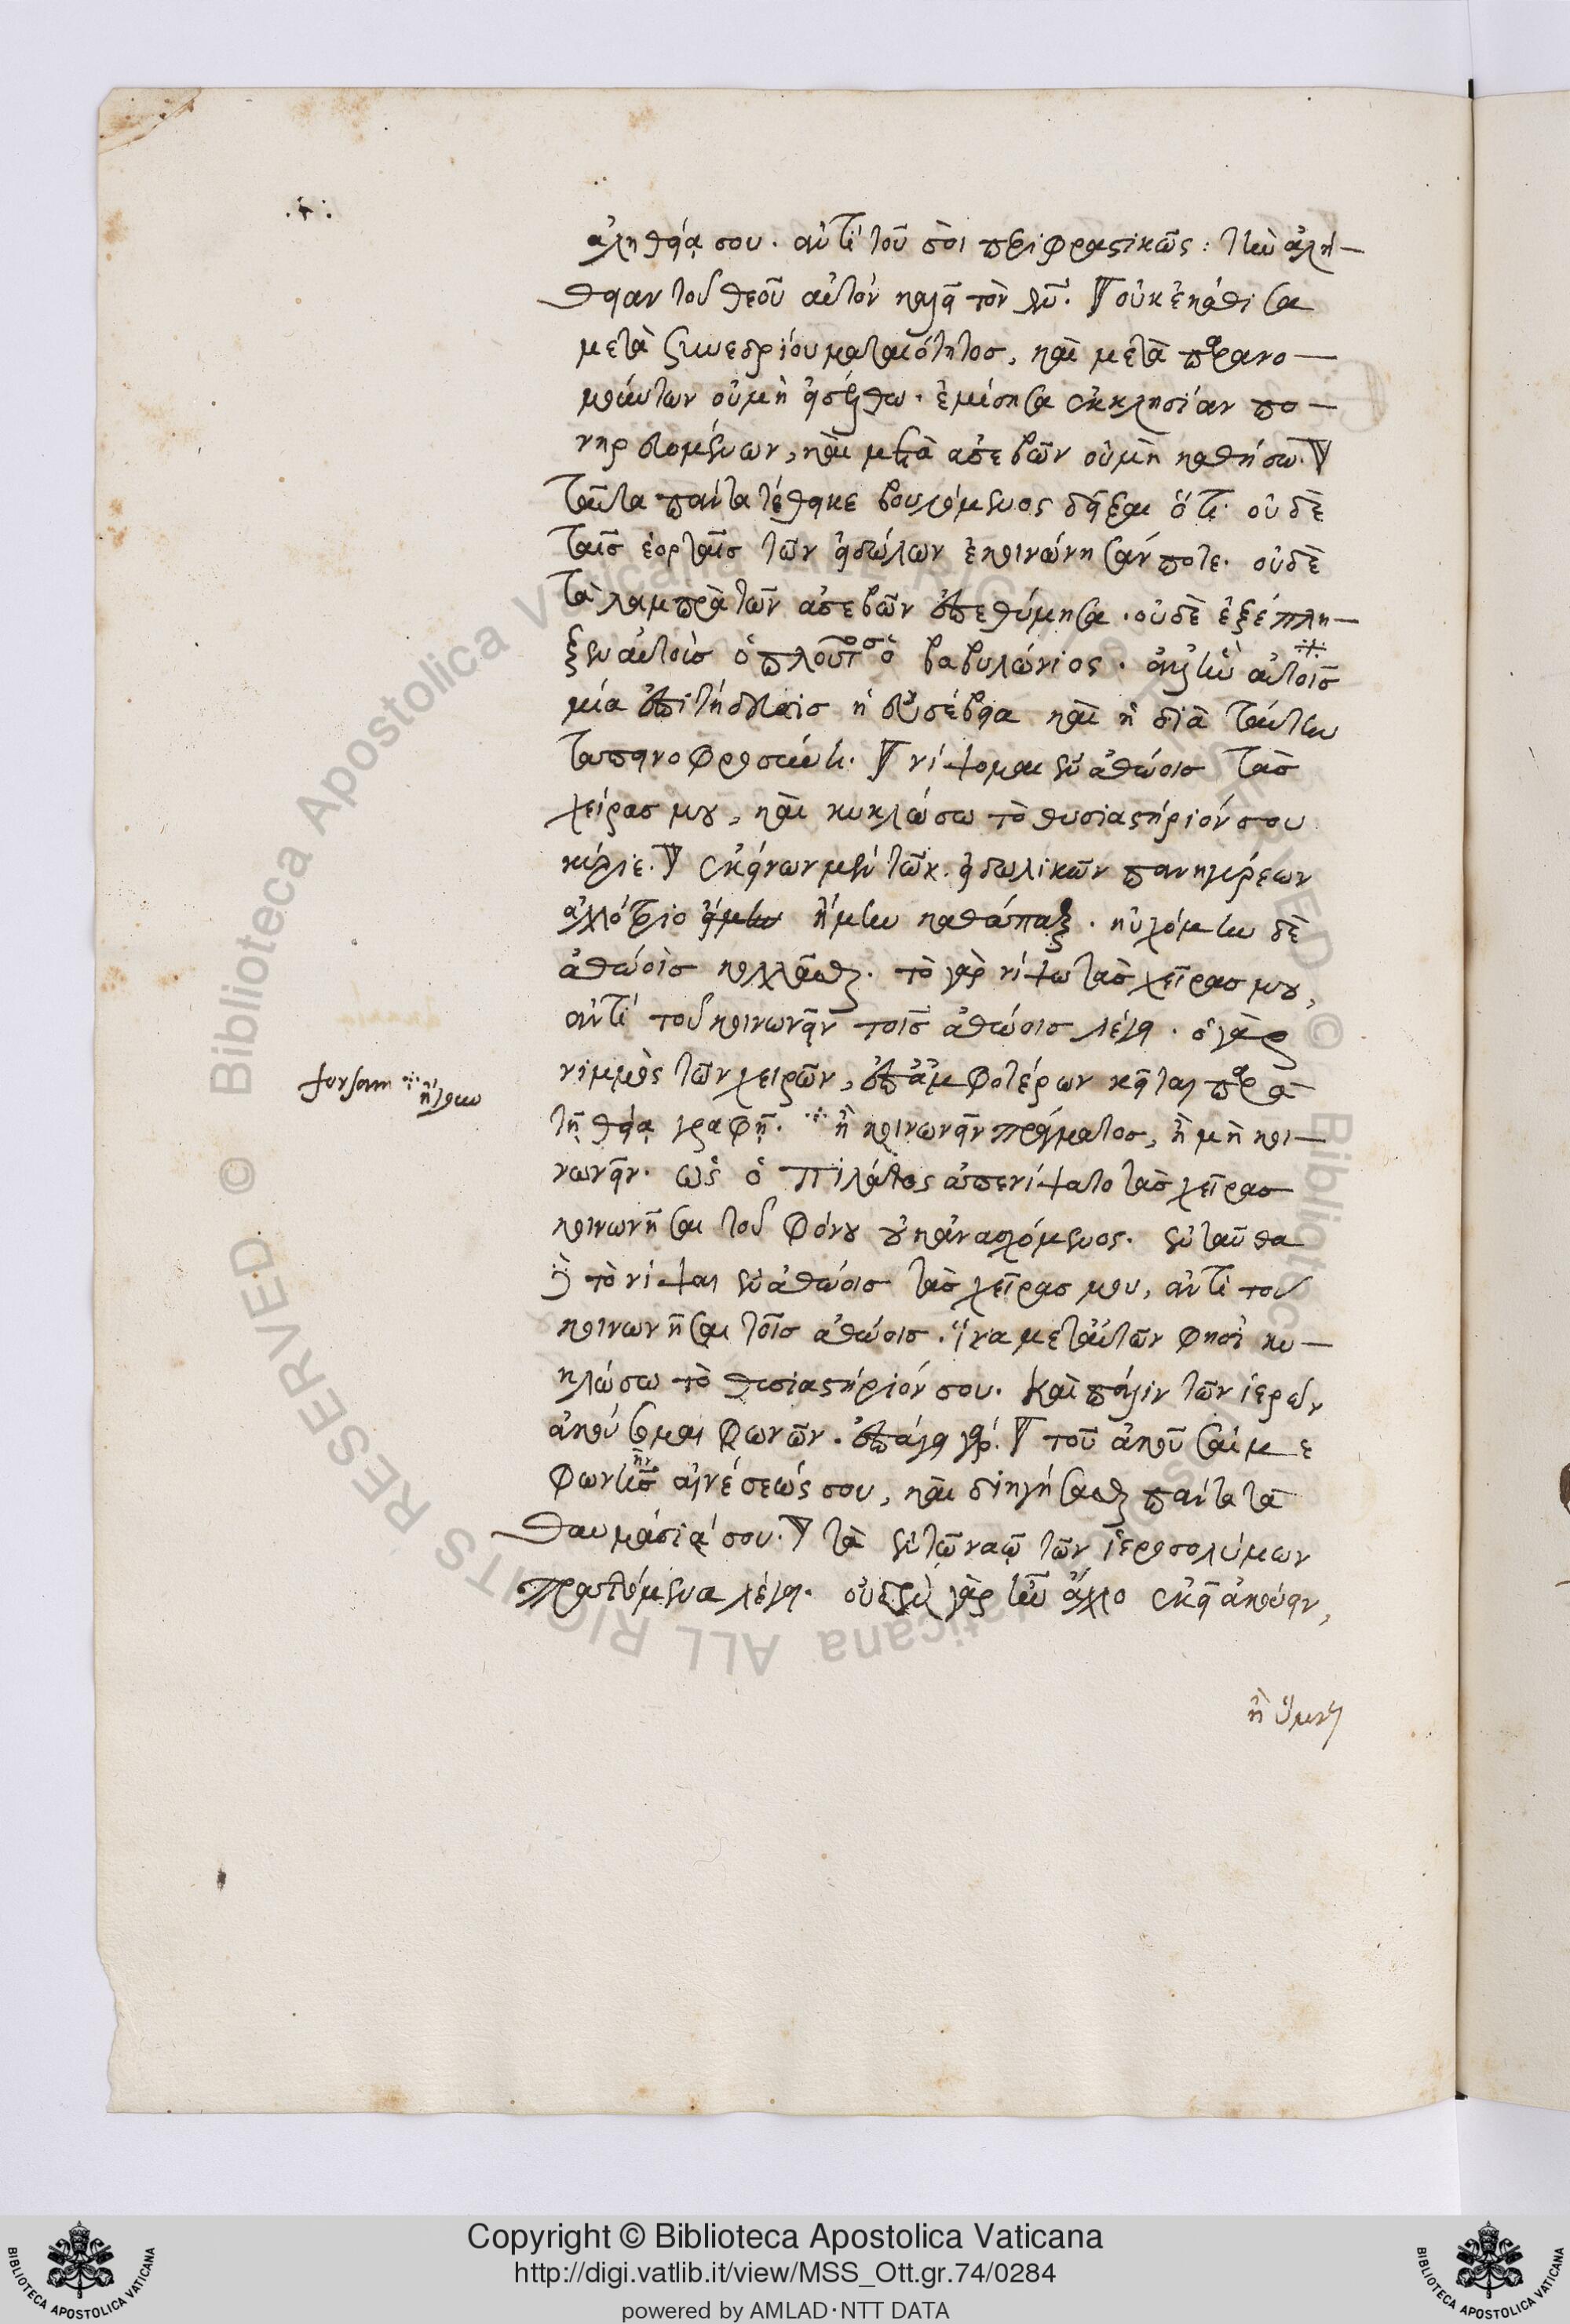 ἀληθείᾳ σου. ἀντὶ τοῦ σοὶ περιφραστικῶς: τὴν ἀλή–
θειαν τοῦ θεοῦ αὐτὸν καλεῖ τὸν θν. οὐκ ἐκάθισα
μετὰ συνεδρίου ματαιότητος, καὶ μετὰ παρανο–
μούντων οὐ μὴ εἰσέλθω. ἐμίσησα ἐκκλησίαν πο–
νηρευομένων, καὶ μετὰ ἀσεβῶν οὐ μὴ καθήσω.
ταῦτα πάντα τέθηκε βουλόμενος δεῖξαι ὅτι οὐδὲ
ταῖς ἑορταῖς τῶν εἰδώλων ἐκοινώνησάν ποτε. οὐδὲ
τὰ λαμπρὰ τῶν ἀσεβῶν ἐπεθύμησα. οὐδὲ ἐξέπλη–
ξεν αὐτοὺς ὁ πλοῦτος ὁ βαβυλώνιος. ἀλλ' ἦν αὐτοῖς
μία ἐπιτήδευσις ἡ εὐσέβεια καὶ ἡ διὰ ταύτην
ταπεινοφροσύνη. νίψομαι ἐν ἀθώοις τὰς
χεῖρας μου, καὶ κυκλώσω τὸ θυσιαστήριόν σου
κύριε. ἐκείνων μὲν τῶν εἰδωλικῶν πανηγύρεων
ἀλλότριο ἤμην καθάπαξ. ηὐχόμην δὲ
ἀθώοις κολλᾶσθαι. τὸ γὰρ νίψω τὰς χεῖρας μου,
ἀντὶ τοῦ κοινωνεῖν τοῖς ἀθώοις λέγει. ὁ γὰρ
νιμμὸς τῶν χειρῶν, ἐπ' ἀμφοτέρων κεῖται παρὰ
τῇ θείᾳ γραφῇ. ἢ κοινωνεῖν πράγματος, ἢ μὴ κοι–
νωνεῖν. ὡς ὁ Πιλάτος ἀπενίψατο τὰς χεῖρας
κοινωνῆσαι τοῦ φόνου οὐκ ἀνασχόμενος. ἐνταῦθα
τὸ νίψαι ἐν ἀθώοις τὰς χεῖρας μου, ἀντὶ τοῦ
κοινωνῆσαι τοῖς ἀθώοις. ἵνα μετ' αὐτῶν φησὶ κυ–
κλώσω τὸ θυσιαστήριόν σου. καὶ πάλιν τῶν ἱερῶν
ἀκούσομαι φωνῶν. ἐπάγει γάρ. τοῦ ἀκοῦσαί με
φωνῆς αἰνέσεώς σου, καὶ διηγήσασθαι πάντα τὰ
θαυμάσιά σου. τὰ ἐν τῷ ναῷ τῶν ἱεροσολύμων
πραττόμενα λέγει. οὐδὲν γὰρ ἦν ἄλλο ἐκεῖ ἀκούειν,
ἢ ὕμνοι
forsam
Copyright © Biblioteca Apostolica Vaticana
http://digi.vatlib.it/view/MSS_Ott.gr.74/0284
powered by AMLAD·NTT DATA
BIBLIOTECA APOSTOLICA VATICANA
BIBLIOTECA APOSTOLICA VATICANA